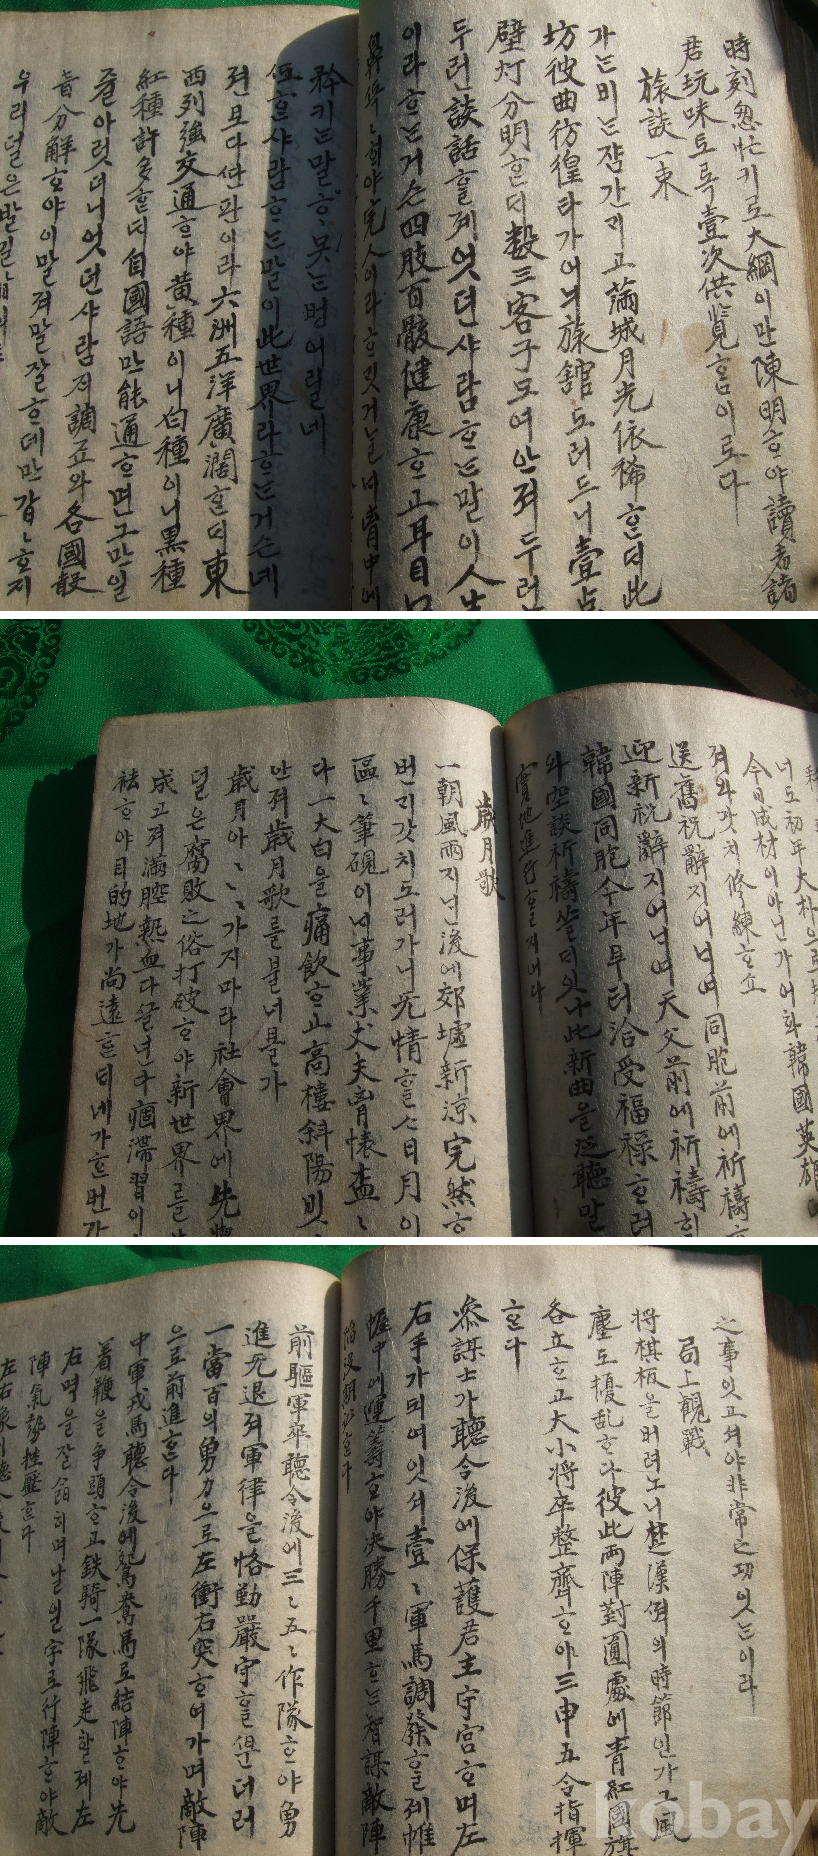 時刻忽忙키로大綱이만陳明ᄒᆞ야讀者諸
君玩味토록壹次供覽ᄒᆞᆷ이로다
旅談一束
가는비는쟘간ᄀᆡ고滿城月光依稀ᄒᆞᆫᄃᆡ此
坊彼曲彷徨타가어늬旅舘도러드니壹点
壁灯分明ᄒᆞᆫᄃᆡ数三客子모여안져두런
두런談話ᄒᆞᆯ졔엇던샤람ᄒᆞ는말이人生
이라ᄒᆞ는거슨四肢百骸健康ᄒᆞ고耳目口
矜키는말ᄒᆞ、못는벙어릴네
ᄒᆞᆫ샤람ᄒᆞ는말이此世界라ᄒᆞ는거슨녜
젼보다산판이라六洲五洋廣濶ᄒᆞᆫᄃᆡ東
西列強交通ᄒᆞ야黃種이니白種이니黑種
紅種許多ᄒᆞᆫᄃᆡ自國語만能通ᄒᆞ면그만일
쥴아럿더니엇던샤람져調죠와各國語
音分解ᄒᆞ야이말져말잘ᄒᆞ데만갑갑ᄒᆞ지
우리덜은발일
너도初年大朴으로
今日成材이아닌가어화韓國英雄
져와갓치修練ᄒᆞ소
送舊祝辭지어ᄂᆡ여同胞前에祈禱
迎新祝辭지어ᄂᆡ여天父前에祈禱
韓國同胞今年부터洽受福祿ᄒᆞ려
와空談祈禱쓸ᄃᆡ잇나此新曲을泛聽말
實地進行ᄒᆞᆯ지어다
歲月歌
一朝風雨지ᄂᆡᆫ後에郊墟新涼完然
번ᄀᆡ갓치도러가니无情ᄒᆞᆯᄉᆞ日月이
區區筆硯이ᄂᆡ事業丈夫胷懷
다一大白을痛飮ᄒᆞ고高樓斜陽빗
안져歲月歌를불너볼가
歲月아歲月아가지마라社會界에先
덜은腐敗之俗打破ᄒᆞ야新世界를
成고져滿腔熱血다ᄭᅳᆯ년다痼滯習이
祛ᄒᆞ야目的地가尙遠ᄒᆞᆫᄃᆡ네가ᄒᆞᆫ번가
之事잇고셔야非常之功잇는이라
局上觀戰
將棋板을버려노니楚漢쩍의時節인가그風
塵도擾乱ᄒᆞ다彼此兩陣對圓處에靑紅國旗
各立ᄒᆞ고大小將卒整齊ᄒᆞ야三申五令指揮
ᄒᆞᆫ다
參謀士가聽令後에保護君主守宮ᄒᆞ며左
右手가되여잇셔壹壹軍馬調發ᄒᆞᆯ졔帷
幄中에運籌ᄒᆞ야决勝千里ᄒᆞ는智謀敵陣
前驅軍卒聽令後에三三五五作隊ᄒᆞ야勇
進无退져軍律을恪勤嚴守ᄒᆞᆯᄲᅮᆫ더러
一當百의勇力으로左衝右突ᄒᆞ여가며敵陣
으로前進ᄒᆞᆫ다
中軍戎馬聽令後에鴛鴦馬로結陣ᄒᆞ야先
着鞭을争頭ᄒᆞ고鉄騎一隊飛走할졔左
右멱을잘餡히며날일字로行陣ᄒᆞ야敵
陣氣勢挫壓ᄒᆞᆫ다
kobay